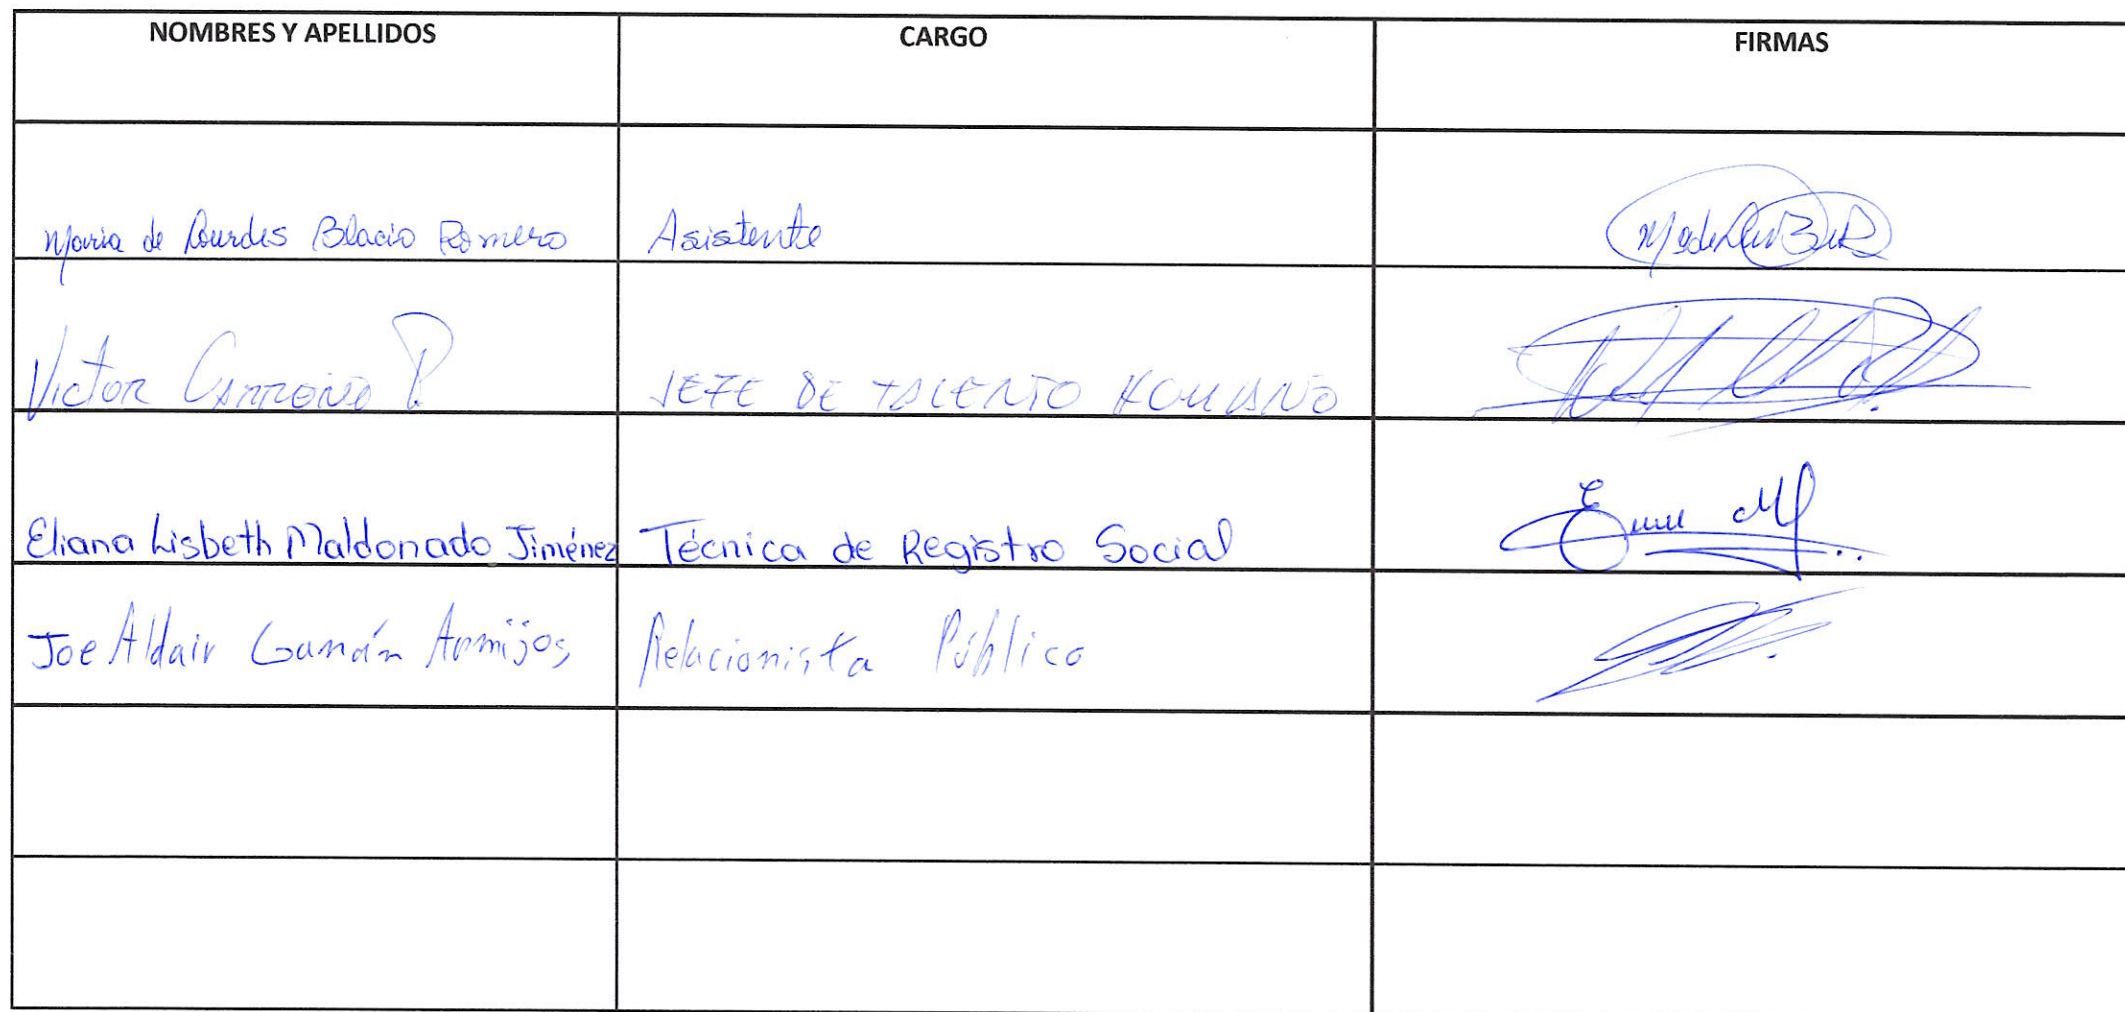 NOMBRES Y APELLIDOS CARGO FIRMAS
Maria de Lourdes Blacio Romero Asistente
Victor Carreño P. JEFE DE TALENTO HUMANO
Eliana Lisbeth Maldonado Jiménez Técnica de Registro Social
Joe Aldair Guamán Armijos Relacionista Público